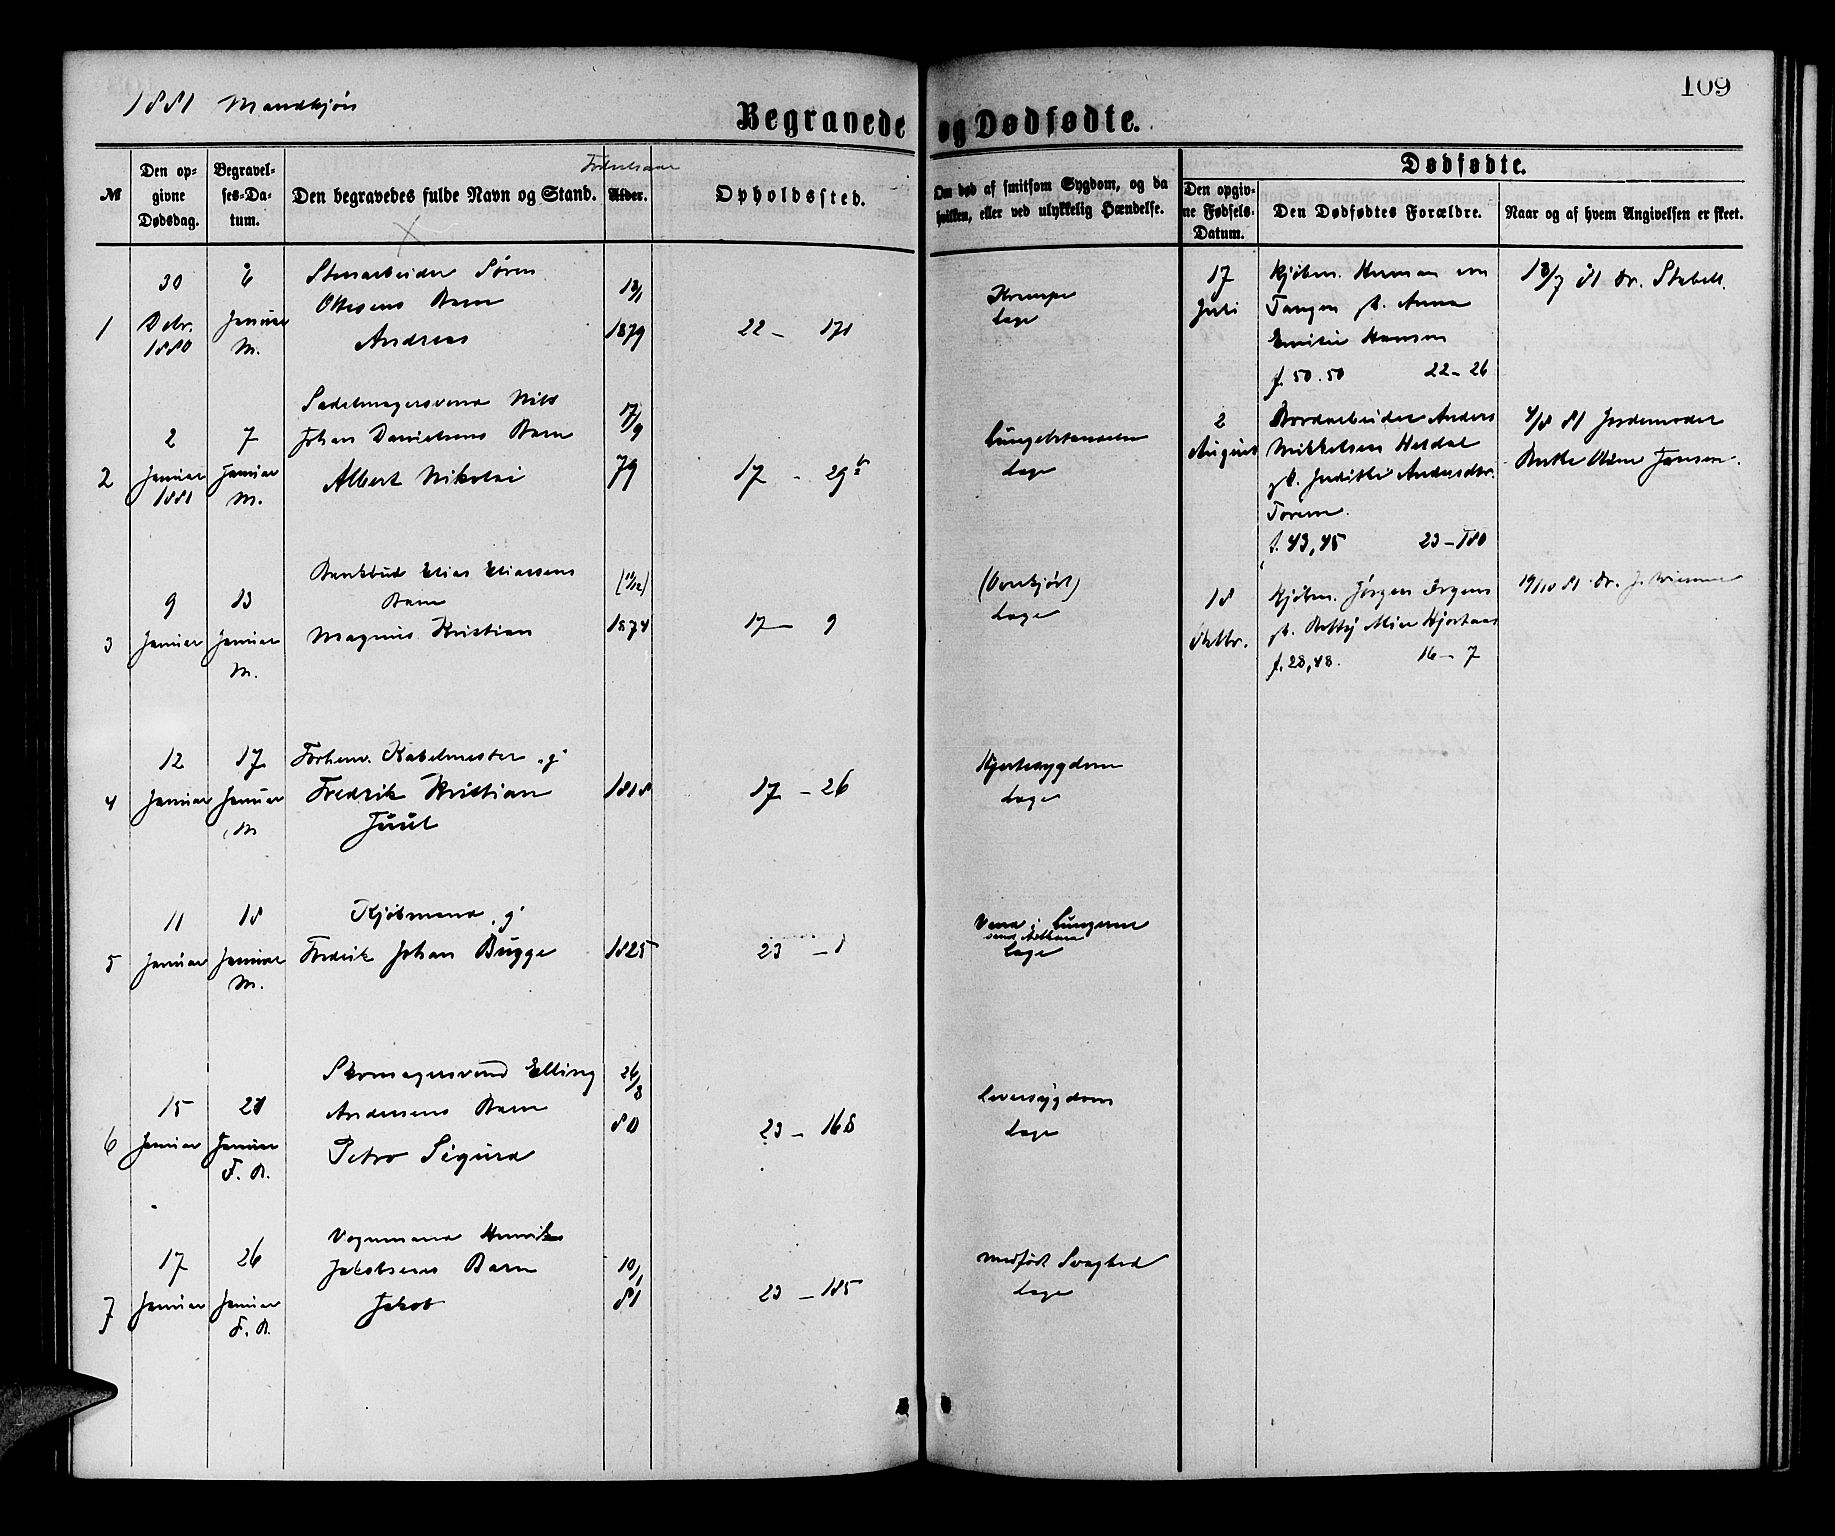 1881 Mandkjøn
109
Begravede og Dødfødte.
№
Den opgivne Dødsdag.
Begravelses-Datum.
Den begravedes fulde Navn og Stand.
Fødselsaar
Alder.
Opholdssted.
Om død af smitsom Sygdom, og da hvilken, eller ved ulykkelig Hændelse.
Dødfødte.
Den opgivne Fødsels-Datum.
Den Dødfødtes Forældre.
Naar og af hvem Angivelsen er skeet.
1
30 Debr. 1880
6 Januar M.
Stenarbeider Søren
Ottesens Barn
Andreas
1879
22 - 171
Krampe
Læge
2
2 Januar 1881
7 Januar M.
Sadelmagersvend Nils
Johan Danielsens Barn
Albert Nikolai
17/9 79
17 - 29 b
Lungebetændelse
Læge
3
9 Januar
13 Januar M.
Bankbud Elias Eliassens
Barn
Magnus Kristian
1874
17 - 9
(Overkjørt)
Læge
4
12 Januar
17 Januar M
Forhenv. Kabelmester g
Fredrik Kristian
Juul
1818
17 - 26
Hjertesygdom
Læge
5
11 Januar
18 Januar M.
Kjøbmand, g
Fredrik Johan Bugge
1825
23 - 1
Vand i Lungerne
Læge
6
15 Januar
21 Januar F. A.
Skomagersvend Elling
Andersens Barn
Petro Sigurd
26/8 80
23 - 168
Leversygdom
Læge
7
17 Januar
26 Januar F. A.
Vognmand Henrik
Jakobsens Barn
Jakob
10/1 81
23 - 185
medfødt Svaghed
Læge
17 Juli
Kjøbm. Herman von
Tangen g. Anna
Emilie Hansen
f. 50. 50 22 - 26
18/7 81 Dr. Stabell
2 August
Jordarbeider Anders
Mikkelsen Heldal
g. Anderdtr.
f. 43, 45 23 - 180
4/8 81 Jordemoder
Jansen.
18
Kjøbm. Jørgen
f. 28, 48. 16 - 7
19/10 81 Dr. J.